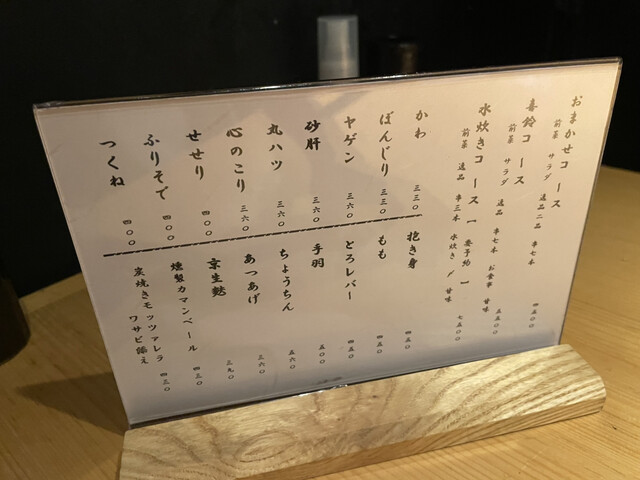 おまかせコース
前菜 サラダ 逸品二品 串七本 四五〇〇
喜鈴コース
前菜 サラダ 逸品 串七本 お食事 甘味 五五〇〇
水炊きコース 【要予約】
前菜 逸品 串三本 水炊き 〆 甘味 七五〇〇
かわ 三三〇
ぼんじり 三三〇
ヤゲン 三六〇
砂肝 三六〇
丸ハツ 三六〇
心のこり 三六〇
せせり 四〇〇
ふりそで 四〇〇
つくね 四〇〇
抱き身 四五〇
もも 四五〇
とろレバー 四五〇
手羽 五〇〇
ちょうちん 五六〇
あつあげ 三六〇
京生麩 三九〇
燻製カマンベール 四三〇
炭焼きモッツァレラ
ワサビ添え 四三〇